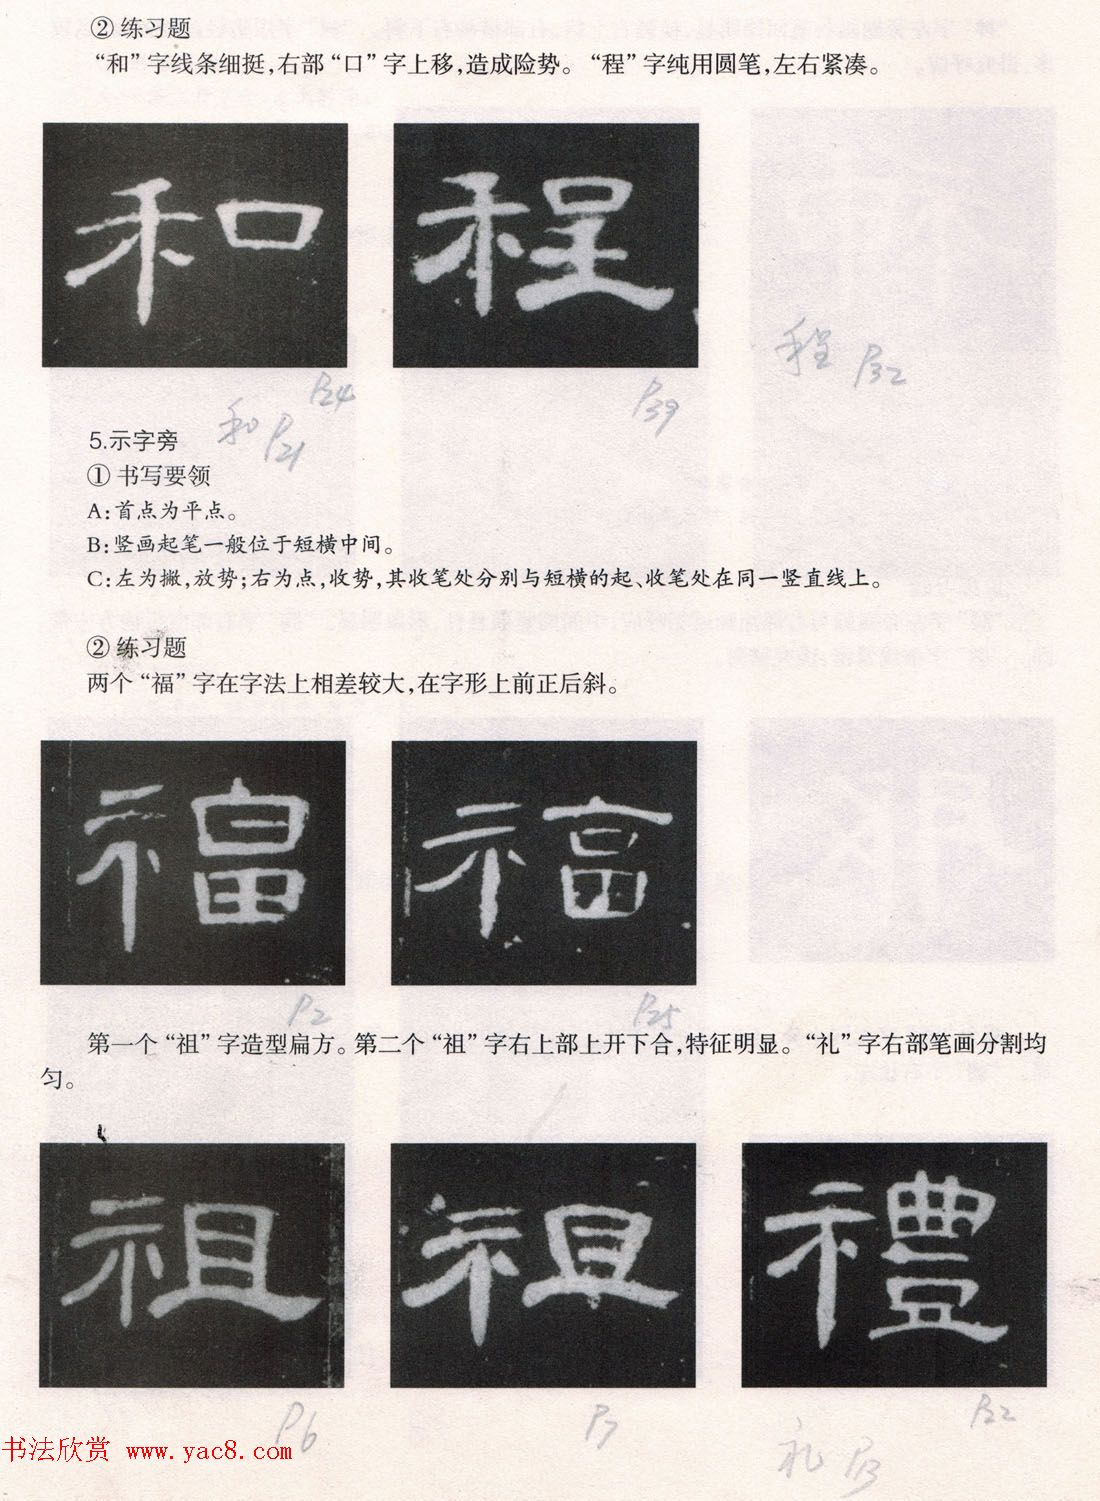 ② 练习题
“和”字线条细挺,右部“口”字上移,造成险势。“程”字纯用圆笔,左右紧凑。
和 程
程 P32
P24 P39
和 P21
5.示字旁
① 书写要领
A:首点为平点。
B:竖画起笔一般位于短横中间。
C:左为撇,放势;右为点,收势,其收笔处分别与短横的起、收笔处在同一竖直线上。
② 练习题
两个“福”字在字法上相差较大,在字形上前正后斜。
福 福
P2 P25
第一个“祖”字造型扁方。第二个“祖”字右上部上开下合,特征明显。“礼”字右部笔画分割均
匀。
祖 祖 禮
P6 P7 P22
书法欣赏 www.yac8.com
礼 P13